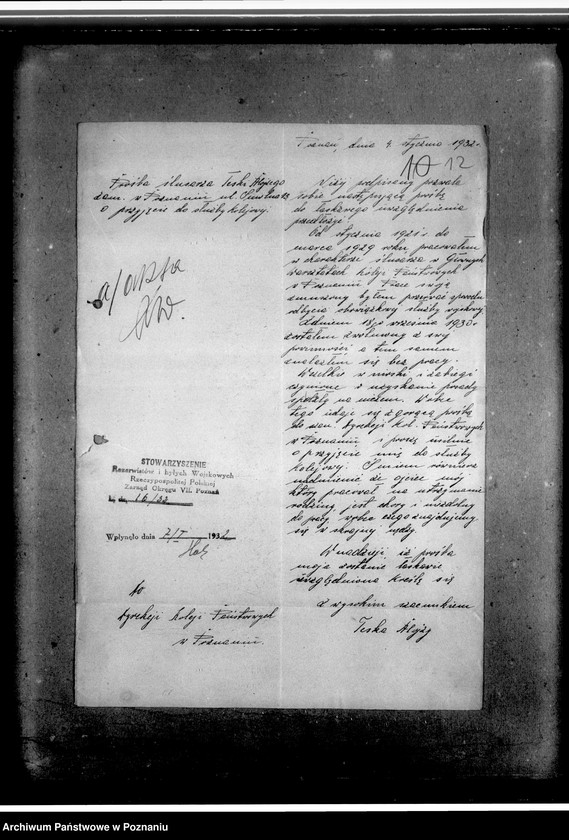 Poznań, dnia 4. stycznia 1932.
10 12
Prośba ślusarza Teski Alojzego
zam. w Poznaniu ul.
o przyjęcie do służby kolejowej.
a/a
Niżej podpisany pozwala
sobie następującą prośbę
do łaskawego uwzględnienia
przedłożyć:
Od stycznia 1921 r. do
marca 1929 roku pracowałem
w charakterze ślusarza w Głównych
Warsztatach Kolei Państwowych
w Poznaniu. Pracę swoją
zmuszony byłem przerwać z powodu
odbycia obowiązkowej służby wojskowej.
Z dniem 18go września 1930 r.
zostałem zwolniony z swej
powinności a tem samem
znalazłem się bez pracy.
Wszelkie wnioski i zabiegi
czynione o uzyskanie posady
spełzły na niczem. Wobec
tego udaję się z gorącą prośbą
do szan. Dyrekcji Kol. Państwowych
w Poznaniu i proszę usilnie
o przyjęcie mnie do służby
kolejowej. Śmiem również
nadmienić że ojciec mój
który pracował na utrzymanie
rodziny jest chory i niezdolny
do pracy, wobec czego znajdujemy
się w skrajnej nędzy.
W nadziei, iż prośba
moja zostanie łaskawie
uwzględniona kreślę się
z wysokim szacunkiem
Teska Alojzy
STOWARZYSZENIE
Rezerwistów i byłych Wojskowych
Rzeczypospolitej Polskiej
Zarząd Okręgu VII. Poznań
L. dz. 16/32
Wpłynęło dnia 7/I 1932
Do
Dyrekcji Kolei Państwowych
w Poznaniu.
Archiwum Państwowe w Poznaniu